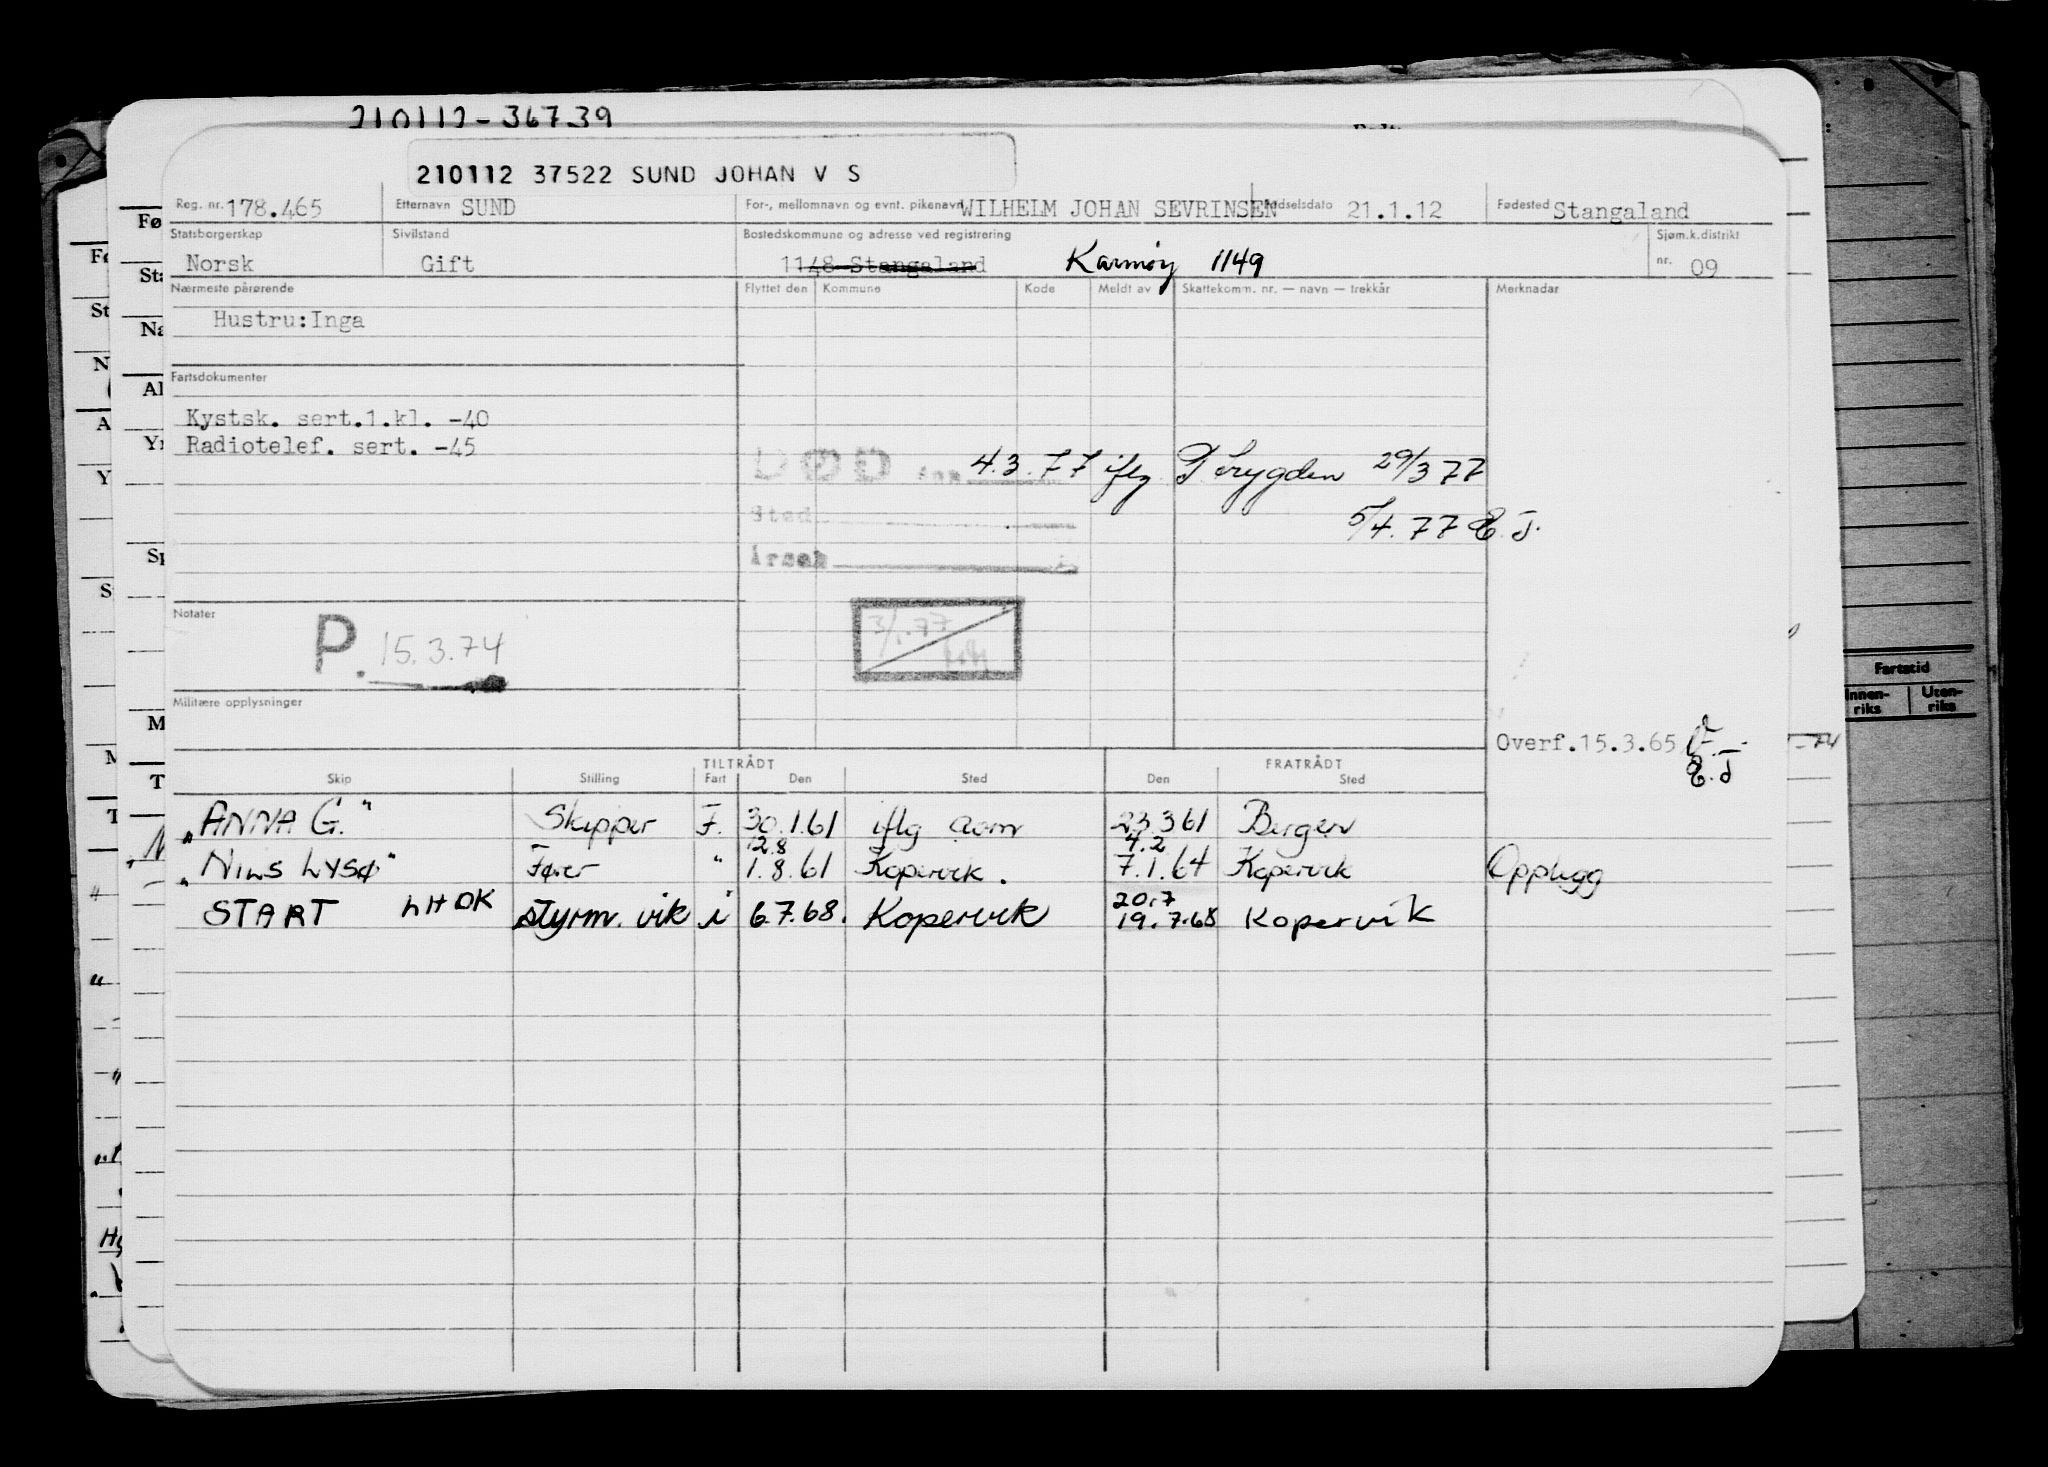 210112-36739
210112 37522 SUND JOHAN V S
Reg. nr. 178.465 Etternavn SUND For-, mellomnavn og evnt. pikenavn WILHELM JOHAN SEVRINSEN Fødselsdato 21.1.12 Fødested Stangaland
Statsborgerskap Sivilstand Bostedskommune og adresse ved registrering Sjøm.k.distrikt
Norsk Gift 1148 Stangaland Karmøy 1149 nr. 09
Nærmeste pårørende Flyttet den Kommune Kode Meldt av Skattekomm. nr. — navn — trekkår Merknadar
Hustru: Inga
Fartsdokumenter
Kystsk. sert.1.kl. -40
Radiotelef. sert. -45
DØD den 4.3.77 iflg. Trygden 29/3 77
Sted 5/4.77 E.J.
Årsak
Notater
P. 15.3.74
3/1.77
Militære opplysninger
Overf.15.3.65
E.J
TILTRÅDT FRATRÅDT
Skip Stilling Fart Den Sted Den Sted
"ANNA G." Skipper F. 30.1.61 iflg aom 23.3.61 Bergen
12.8 4.2
"NILS LYSØ" Fører " 1.8.61 Kopervik. 7.1.64 Kopervik Opplagg
20.7
START LHDK styrm. vik i 6.7.68. Kopervik 19.7.68 Kopervik
Fartstid
Innen-riks Uten-riks